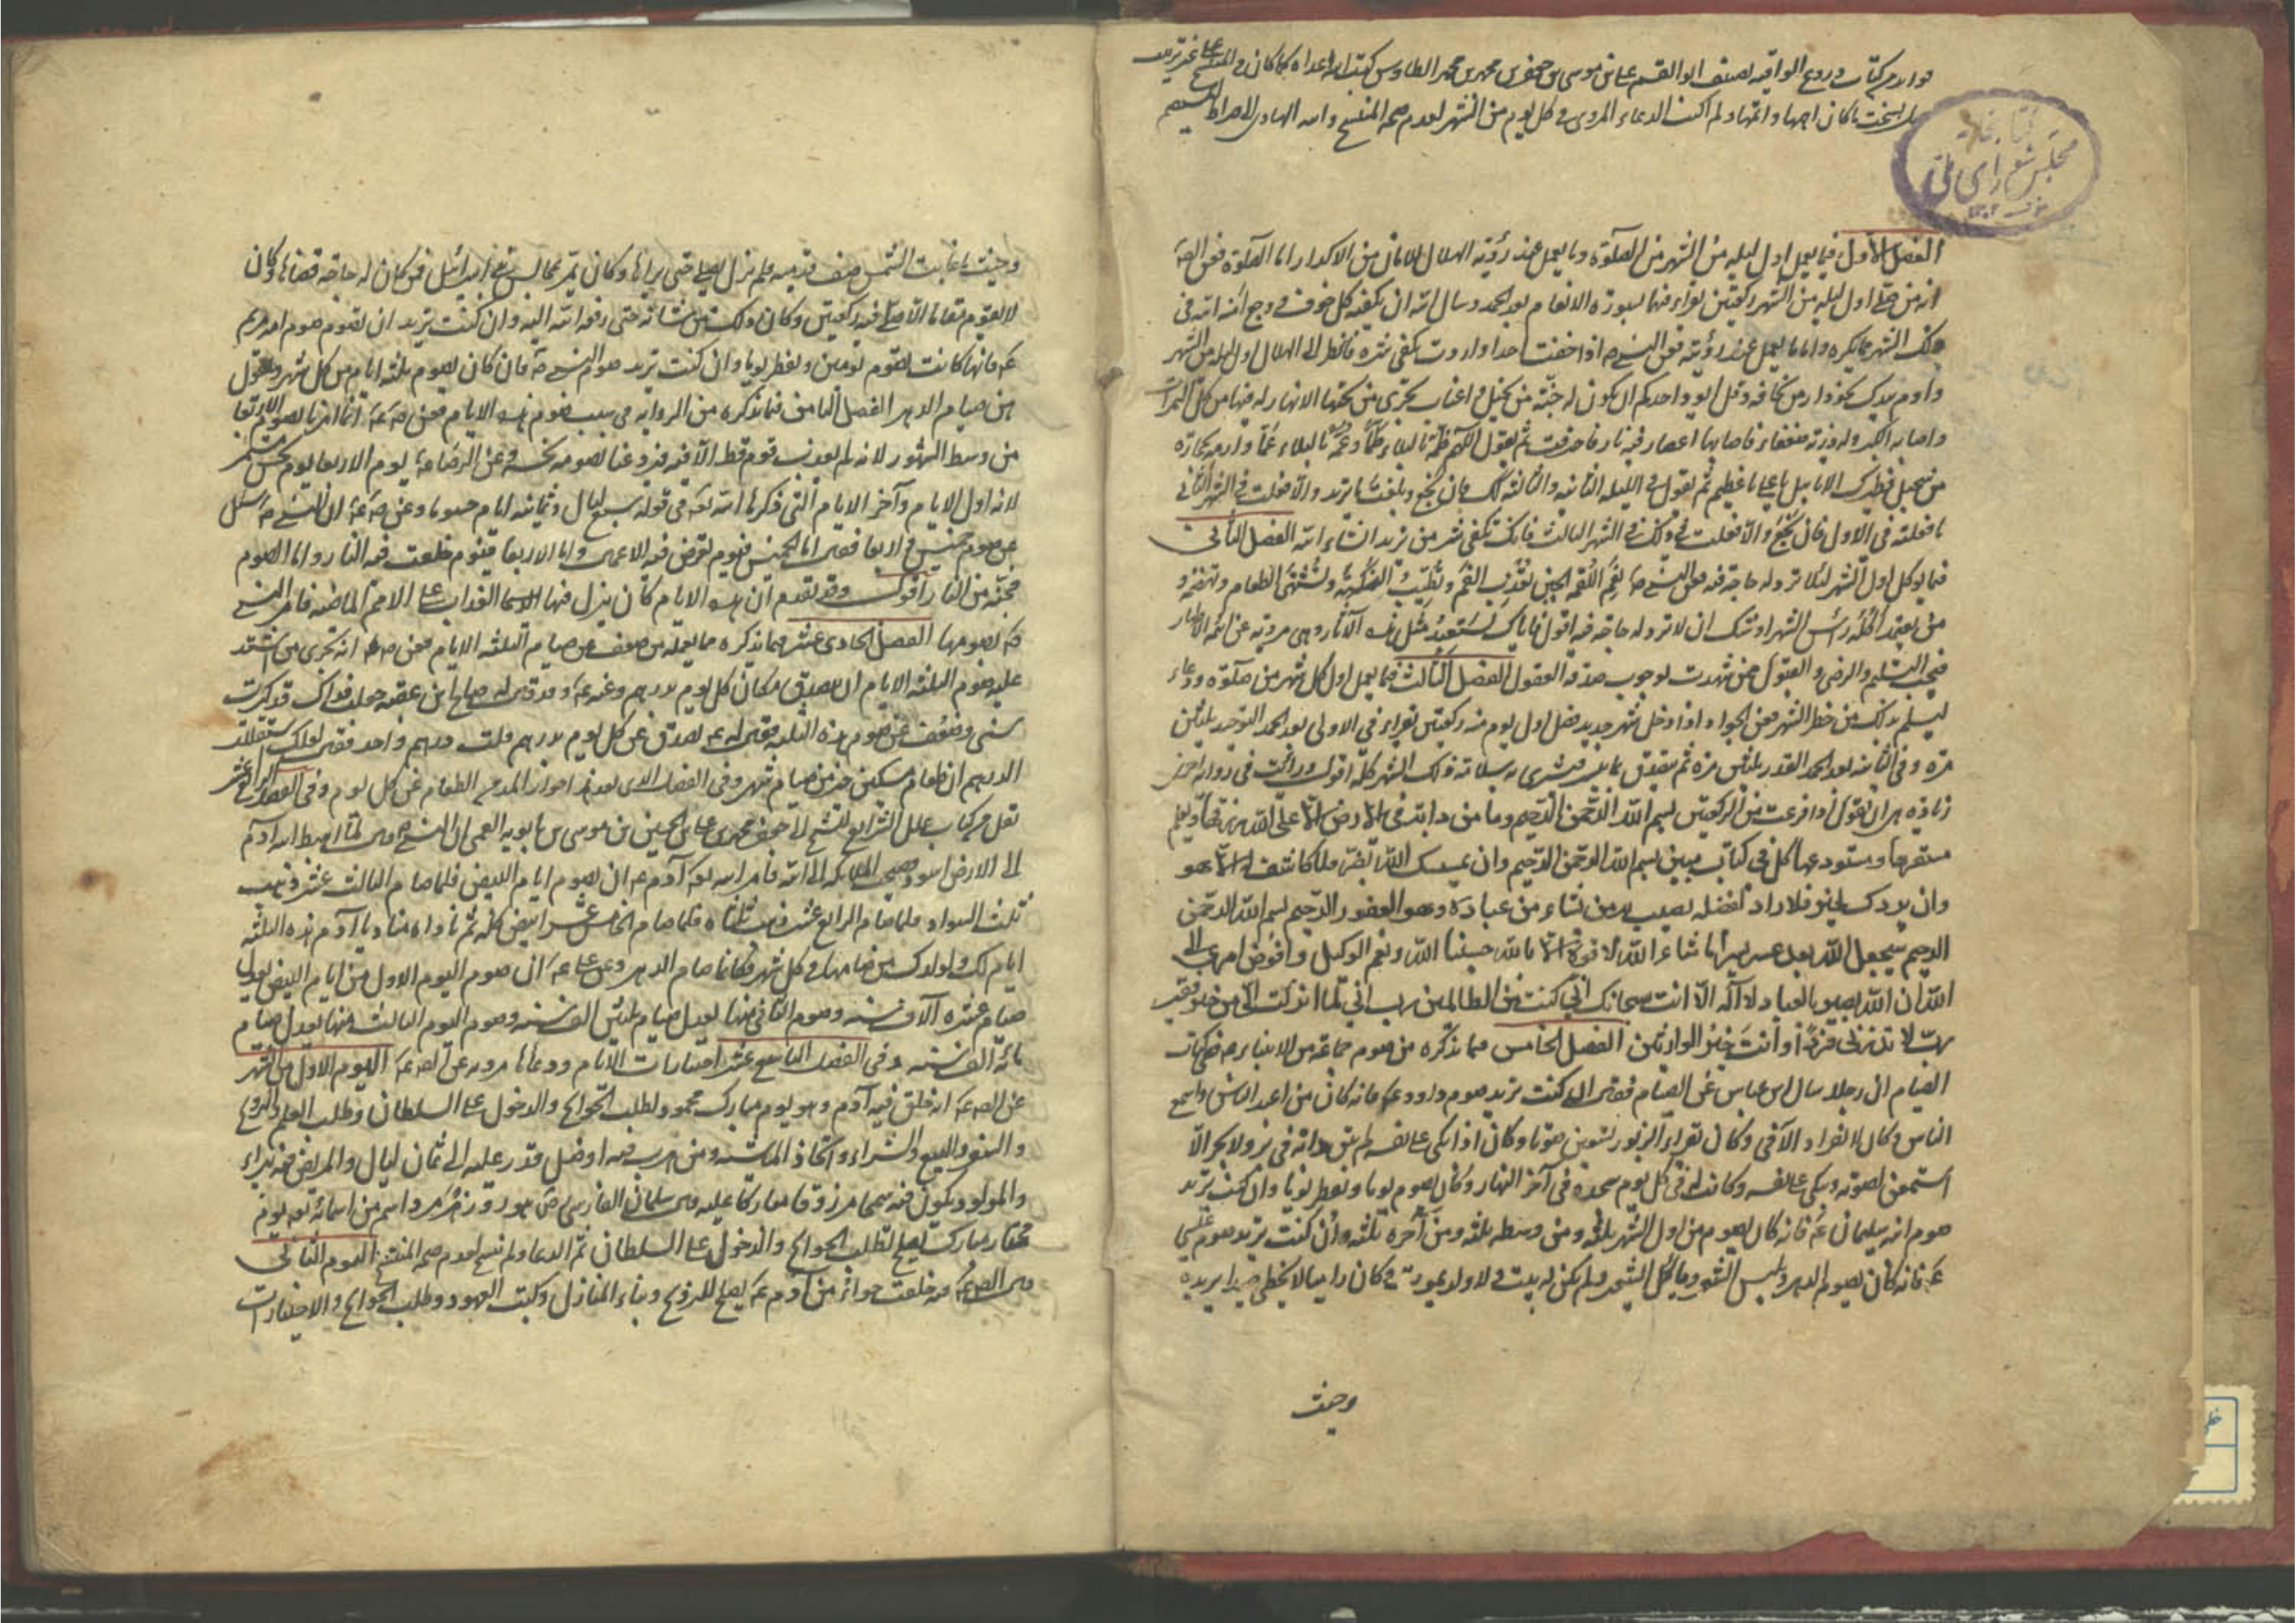 كتاب دروع الواقية لصنف ابو القسم على بن موسى بن جعفر بن محمد بن محمد الطاوس كتبت اعداده كما كان فى
ما كان اصلها واتمها ولم اكتب الدعاء المروى فى كل يوم من الشهر لعدم صحة المنتسخ والله الهادى الى صراط المستقيم
كتابخانه
مجلس شوراى ملى
الفصل الاول فيما يعمل اول ليله من الشهر من الصلوة وما يعمل عند رؤية الهلال للامان من الاكدار اما الصلوة فعن
ان من صلى اول ليله من الشهر ركعتين يقراء فيهما بسورة الانعام بعد الحمد وسال الله ان يكفيه كل خوف ووجع امنه الله فى
ذلك الشهر مما يكره واما ما يعمل عند رؤيته فعن النبى ص اذا خفت احدا واردت تكفى شره فانظر الى الهلال اول ليله من الشهر
وقل ايود احدكم ان يكون له جنة من نخيل واعناب تجرى من تحتها الانهار له فيها من كل الثمرات
واصابه الكبر وله ذرية ضعفاء فاصابها اعصار فيه نار فاحترقت ثم يقول اللهم طمه بالبلاء طما وغمه بالبلاء غما وارمه بحجارة
من سجيل وطيرك الابابيل يا على يا عظيم ثم يقول فى الليلة الثانيه والثالثه كك فان نجح وبلغت ما تريد والا فعلت فى الشهر الثانى
ما فعلته فى الاول فان نجح والا فعلت ذلك فى الشهر الثالث فانك تكفى شر من تريد انشاء الله الفصل الثانى
فيما يوكل اول الشهر لئلا ترد له حاجة فيه عن النبى ص نعم اللقمة الجبن تعذب الفم وتطيب النكهة وتشتهى الطعام وتهضمه و
من يعتمد اكله راس الشهر اوشك ان لا ترد له حاجة فيه اقول فاياك تستبعد مثل هذه الآثار وهى مروية عن الائمة الاطهار
فيجب التسليم والرضى والقبول ممن شهدت بوجوب صدقه العقول الفصل الثالث فيما يعمل اول كل شهر من صلوة ودعاء
ليسلم بذلك من خطر الشهر فعن الجواد ع اذا دخل شهر جديد فصل اول يوم منه ركعتين تقراء فى الاولى بعد الحمد التوحيد ثلثين
مرة وفى الثانيه بعد الحمد القدر ثلثين مرة ثم يتصدق بما تيسر فتشترى به سلامة ذلك الشهر كله اقول ورايت فى رواية اخرى
زيادة هى ان يقول اذا فرغت من الركعتين بسم الله الرحمن الرحيم وما من دابة فى الارض الا على الله رزقها ويعلم
مستقرها ومستودعها كل فى كتاب مبين بسم الله الرحمن الرحيم وان يمسسك الله بضر فلا كاشف له الا هو
وان يردك بخير فلا راد لفضله يصيب به من يشاء من عباده وهو الغفور الرحيم بسم الله الرحمن
الرحيم سيجعل الله بعد عسر يسرا ما شاء الله لا قوة الا بالله حسبنا الله ونعم الوكيل وافوض امرى الى
الله ان الله بصير بالعباد لا اله الا انت سبحانك انى كنت من الظالمين رب انى لما انزلت الى من خير فقير
رب لا تذرنى فردا وانت خير الوارثين الفصل الخامس مما نذكره من صوم جماعة من الانبياء ص فى كتاب
الصيام ان رجلا سال ابن عباس عن الصيام فقال ان كنت تريد صوم داود ع فانه كان من اعبد الناس واسمع
الناس وكان لا يفر اذ الاقى وكان يقراء الزبور بسبعين صوتا وكان اذا بكى على نفسه لم تبق دابة فى بر ولا بحر الا
استمعن لصوته ويبكى على نفسه وكانت له فى كل يوم سجدة فى آخر النهار وكان يصوم يوما ويفطر يوما وان كنت تريد
صوم ابنه سليمان ع فانه كان يصوم من اول الشهر ثلثه ومن وسطه ثلثه ومن آخره ثلثه وان كنت تريد صوم عيسى
ع فانه كان يصوم الدهر ويلبس الشعر وياكل الشعير ولم يكن له بيت ولا ولد يموت وكان راميا لا يخطى صيدا يريده
وحيث
وحيث ما غابت الشمس صف قدميه فلم يزل يصلى حتى يراها وكان يمر بمجالس بنى اسرائيل فمن كان له حاجة قضاها وكان
لا يقوم مقاما الا صلى فيه ركعتين وكان ذلك من شانه حتى رفعه الله اليه وان كنت تريد ان تصوم صوم امه مريم
ع فانها كانت تصوم يومين وتفطر يوما وان كنت تريد صوم النبى ص فانه كان يصوم ثلثة ايام من كل شهر ويقول
هن صيام الدهر الفصل الثامن فيما نذكره من الرواية فى سبب صوم هذه الايام
من وسط الشهور لانه لم يعذب قوم قط الا فيه فيرد عنا بصومه نحسه وعن الرضا ع يوم الاربعا يوم نحس مستمر
لانه اول الايام وآخر الايام التى ذكرها الله تع فى قوله سبع ليال وثمانية ايام حسوما وعن ص ع ان النبى ص سئل
عن صوم خميسين واربعا فقال اما الخميس فيوم تعرض فيه الاعمال واما الاربعا فيوم خلقت فيه النار واما الصوم
فجنة من النار اقول وقد تقدم ان هذه الايام كان ينزل فيها العذاب على الامم الماضيه فامر النبى
ص بصومها الفصل الحادى عشر فيما نذكره مما يعمله من ضعف عن صيام الثلثه الايام فعن انه يجزى من اشتد
عليه صوم الثلثه الايام ان يتصدق مكان كل يوم بدرهم
سنى وضعفت عن صوم هذه الثلثه
الدرهم ان اطعام مسكين خير من صيام شهر وفى الفصل الذى بعده جواز المد من الطعام عن كل يوم وفى الفصل الرابع عشر
نقل من كتاب علل الشرائع للشيخ ابى جعفر محمد بن على بن الحسين بن موسى بن بابويه القمى ان النبى ص قال لما اهبط الله آدم
الى الارض اسود وضجت الملائكه الى الله فامر الله تع آدم ع ان يصوم ايام البيض فلما صام الثالث عشر ذهب
ثلث السواد فلما صام الرابع عشر ذهب ثلثاه فلما صام الخامس عشر ابيض كله ثم ناداه مناد يا آدم هذه الثلثه
ايام لك ولولدك من صامها فى كل شهر فكانما صام الدهر وعن على ع ان صوم اليوم الاول من ايام البيض يعدل
صيام عشره آلاف سنه وصوم الثانى منها يعدل صيام ثلثين الف سنه وصوم اليوم الثالث منها يعدل صيام
مائة الف سنه وفى الفصل التاسع عشر اختيارات الايام ودعاها مرويه عن الص ع اليوم الاول من الشهر
عن الص ع انه خلق فيه آدم وهو يوم مبارك محمود لطلب الحوائج والدخول على السلطان وطلب العلم والتزويج
والسفر والبيع والشراء واتخاذ الماشيه ومن هرب فيه او ضل قدر عليه الى ثمان ليال والمريض فيه يبراء
والمولود يكون فيه سمحا مرزوقا مباركا عليه وقال سلمان الفارسى رض هو روز هرمزد اسم من اسمائه تع يوم
مختار مبارك يصلح لطلب الحوائج والدخول على السلطان ثم الدعا ولم ننسخ لعدم صحه المنتسخ اليوم الثانى
قال الص ع فيه خلقت حوا من آدم ع يصلح للتزويج وبناء المنازل وكتب العهود وطلب الحوائج والاختيارات